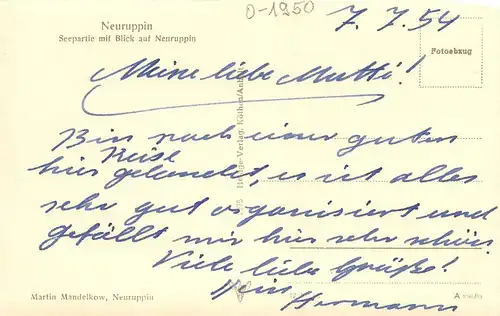 Neuruppin
Seepartie mit Blick auf Neuruppin
O-1950
7. 7. 54
Fotoabzug
Meine liebe Mutti!
Bin nach einer guten
Reise
hier gelandet, es ist alles
sehr gut organisiert und
gefällt mir hier sehr schön.
Viele liebe Grüße!
Dein
Hermann
Martin Mandelkow, Neuruppin